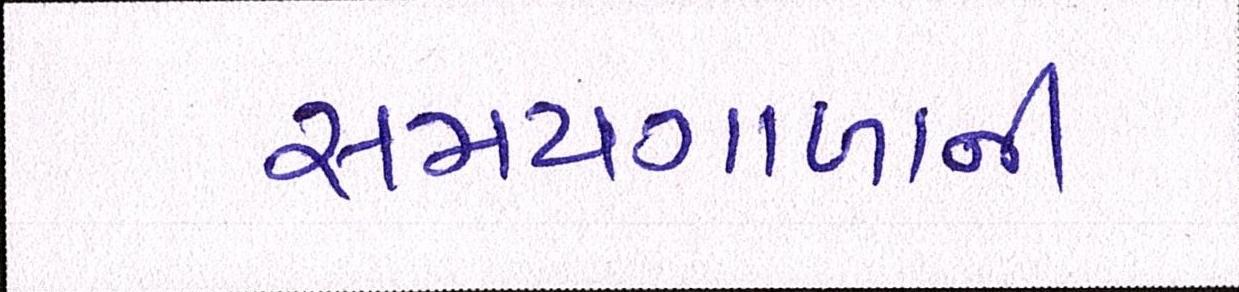 સમયગાળાની